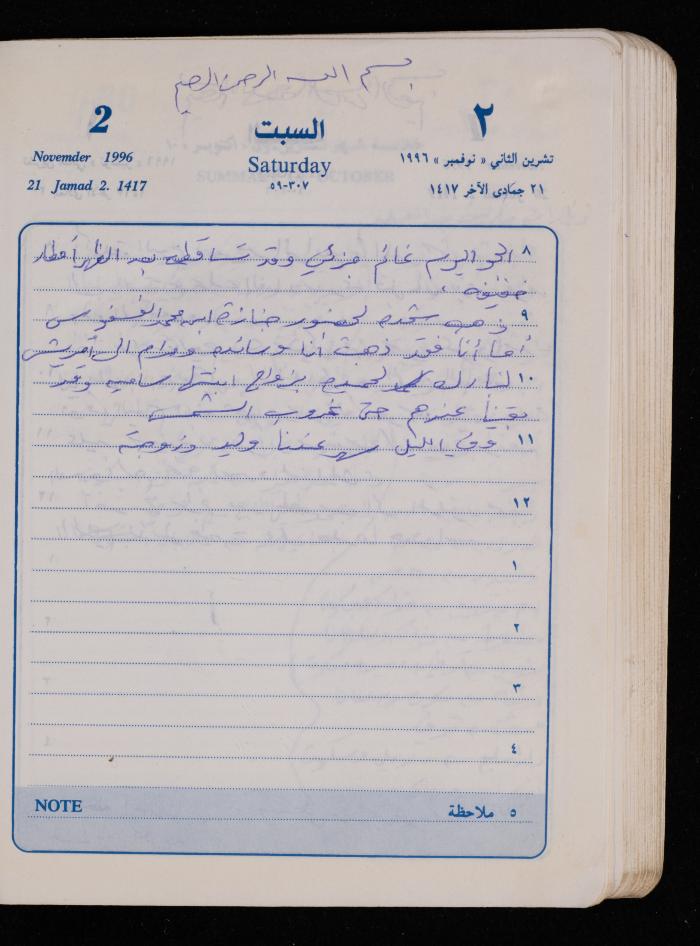 بسم الله الرحمن الرحيم
2 السبت ٢
Novemder 1996 Saturday تشرين الثاني « نوفمبر » ١٩٩٦
21 Jamad 2. 1417 ٣٠٧-٥٩ ٢١ جمادى الآخر ١٤١٧
٨ الجو اليوم غائم جزئي وقد تساقطت بعد الظهر أمطار
خفيفة .
٩ ذهب لحضور جنازة ابن محمد
أما أنا فقد ذهبت أنا وسائده ومرام الى
١٠ لنبارك لحميده بزواج ابنتها ساميه وقد
بقينا عندهم حتى غروب الشمس
١١ وفي الليل سهر عندنا وليد وزوجته
١٢
١
٢
٣
٤
NOTE ٥ ملاحظة